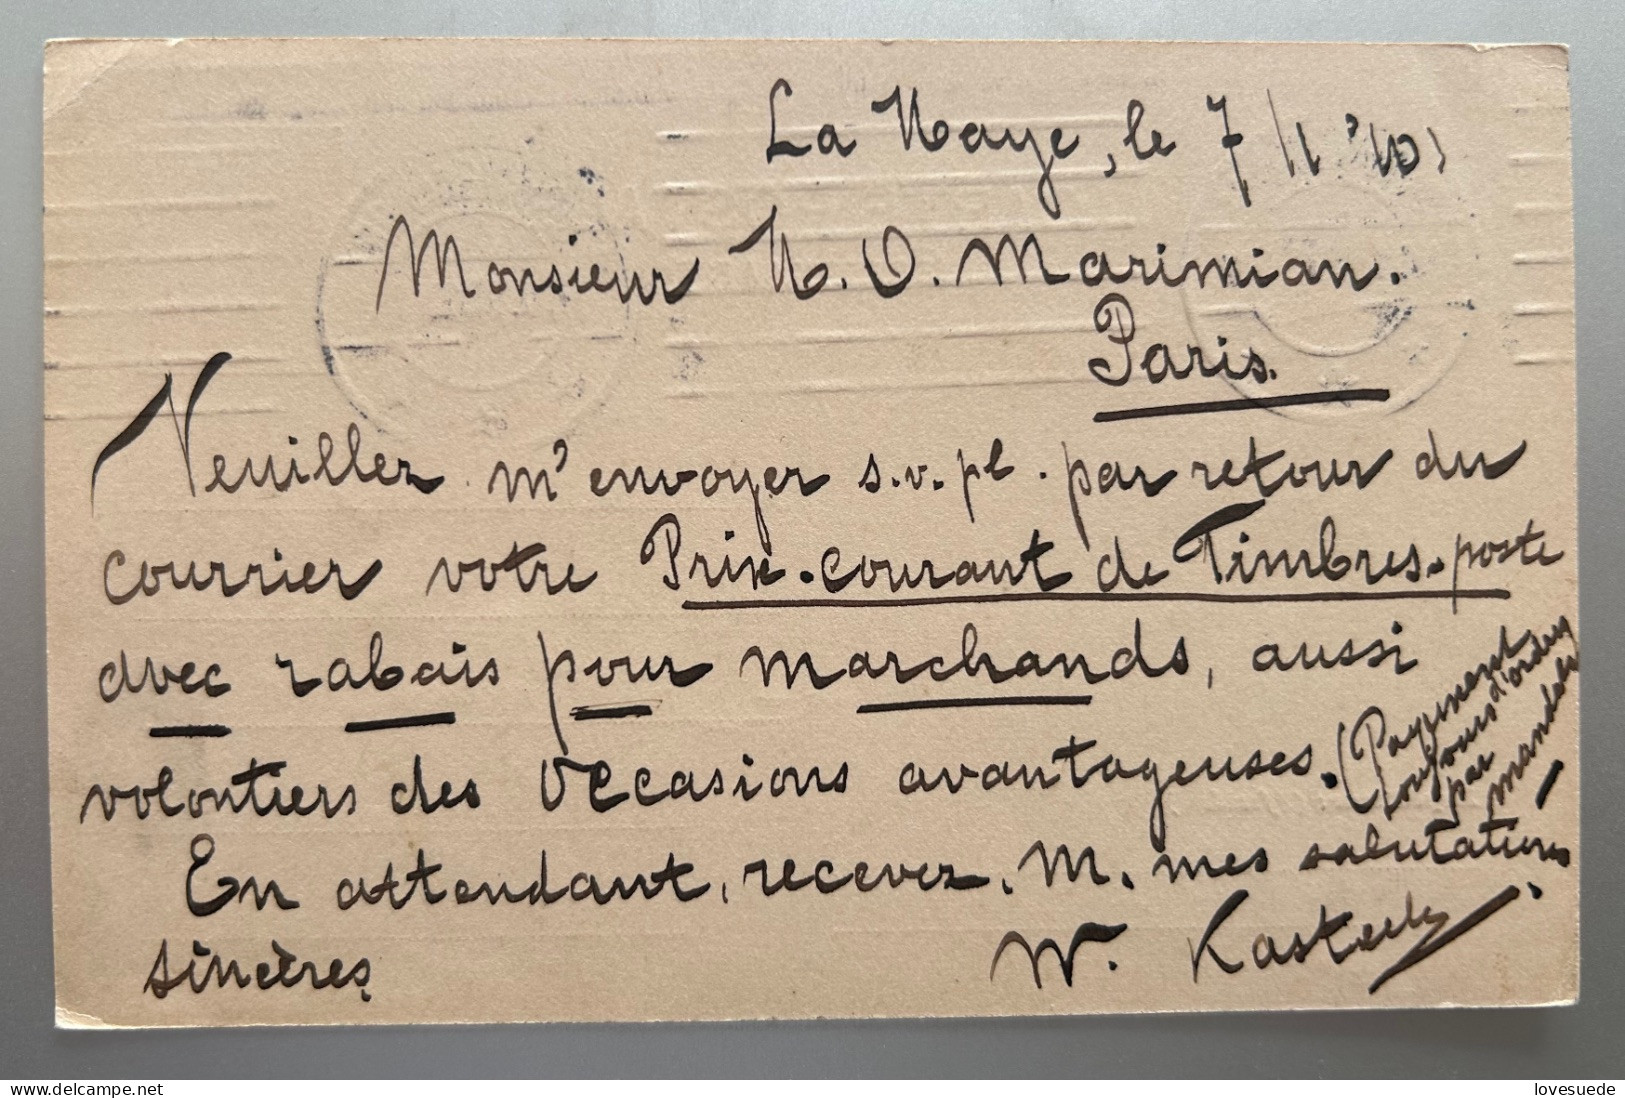 La Haye, le 7/1 '10,
Monsieur H. O. Marimian.
Paris.
Veuillez m'envoyer s.v.pl. par retour du
courrier votre Prix-courant de Timbres-poste
avec rabais pour marchands, aussi
volontiers des occasions avantageuses. (Payement
toujours d'ordre
par mandat)
En attendant, recevez, M. mes salutations
sincères,
W.
www.delcampe.net
lovesuede